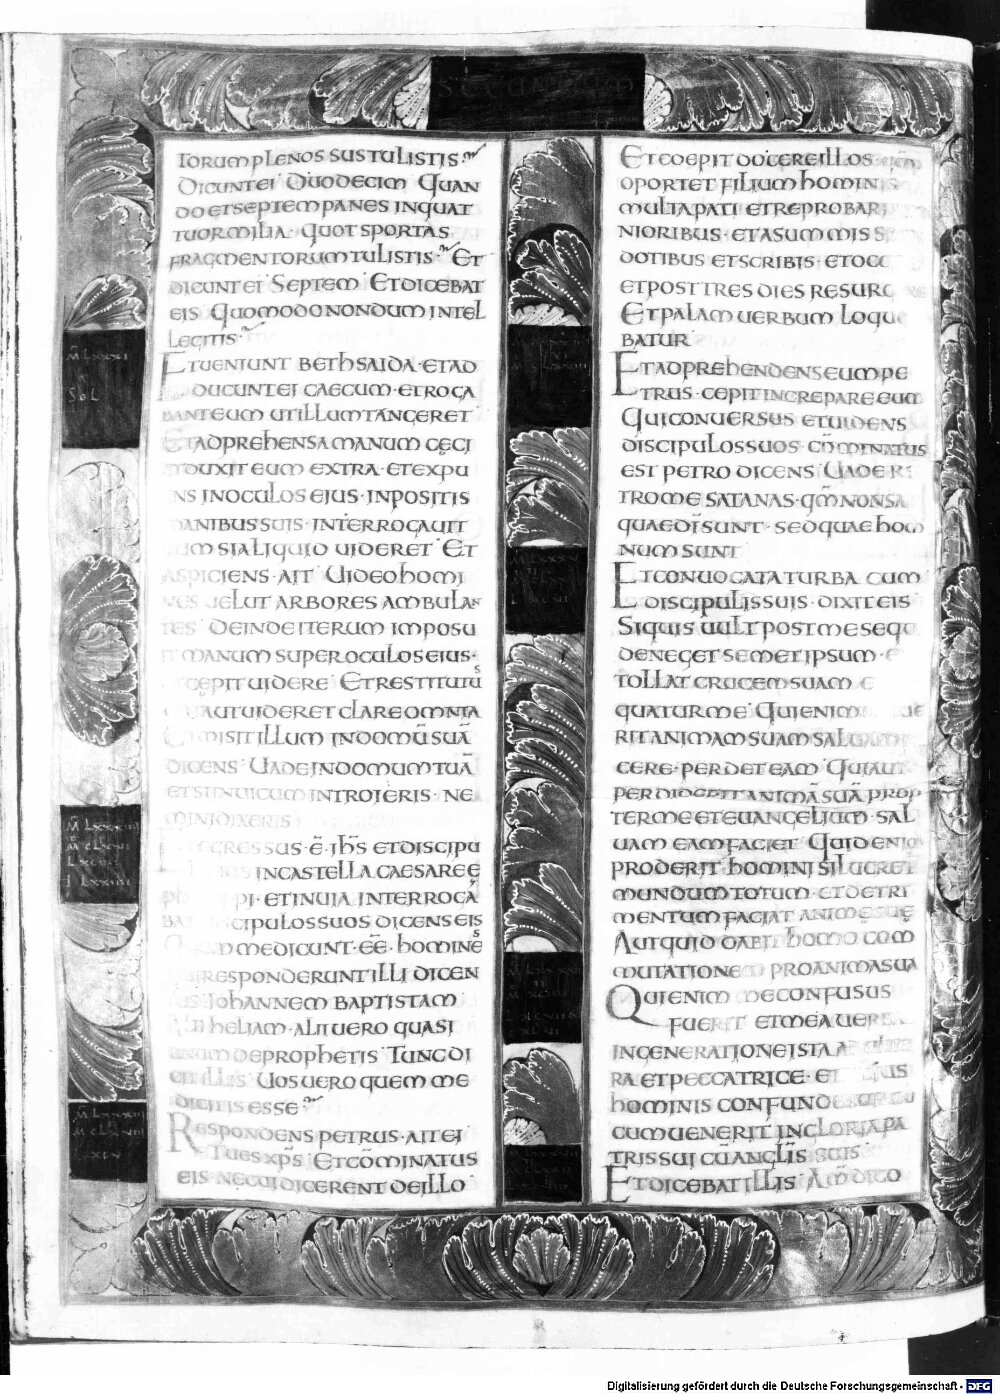 SECUNDUM
TORUM PLENOS SUSTULISTIS
DICUNT EI DUODECIM QUAN
DO ET SEPTEM PANES IN QUAT
TUOR MILIA QUOT SPORTAS
FRAGMENTORUM TULISTIS ET
DICUNT EI SEPTEM ET DICEBAT
EIS QUOMODO NONDUM INTEL
LEGITIS
ET UENIUNT BETHSAIDA ET AD
DUCUNT EI CAECUM ET ROGA
BANT EUM UT ILLUM TANGERET
ET ADPREHENSA MANUM CĘCI
DUXIT EUM EXTRA ET EXPU
NS IN OCULOS EIUS INPOSITIS
MANIBUS SUIS INTERROGAUIT
UM SI ALIQUID UIDERET ET
ASPICIENS AIT UIDEO HOMI
NES UELUT ARBORES AMBULAN
TES DEINDE ITERUM IMPOSU
IT MANUM SUPER OCULOS EIUS
CĘPIT UIDERE ET RESTITUTUS
AUT UIDERET CLARE OMNIA
ET MISIT ILLUM IN DOMŪ SUĀ
DICENS UADE IN DOMUM TUĀ
ET SI IN UICUM INTROIERIS NE
MINI DIXERIS
EGRESSUS Ē IHS ET DISCIPU
IN CASTELLA CAESAREĘ
PHILIPPI ET IN UIA INTERROGA
BAT DISCIPULOS SUOS DICENS EIS
QUEM ME DICUNT EĒ HOMINES
RESPONDERUNT ILLI DICEN
TES IOHANNEM BAPTISTAM
ALII HELIAM ALII UERO QUASI
UNUM DE PROPHETIS TUNC DI
CIT ILLIS UOS UERO QUEM ME
DICITIS ESSE
RESPONDENS PETRUS AIT EI
TU ES XPS ET COMINATUS
EIS NE CUI DICERENT DE ILLO
ET COEPIT DOCERE ILLOS QM
OPORTET FILIUM HOMINIS
MULTA PATI ET REPROBARI
NIORIBUS ET A SUMMIS S
DOTIBUS ET SCRIBIS ET OCC
ET POST TRES DIES RESURG
ET PALAM UERBUM LOQUE
BATUR
ET ADPREHENDENS EUM PE
TRUS CEPIT INCREPARE EUM
QUI CONUERSUS ET UIDENS
DISCIPULOS SUOS COMINATUS
EST PETRO DICENS UADE R
TRO ME SATANAS QM NON SA
QUAE DI SUNT SED QUAE HOM
NUM SUNT
ET CONUOCATA TURBA CUM
DISCIPULIS SUIS DIXIT EIS
SI QUIS UULT POST ME SEQU
DENEGET SEMET IPSUM
TOLLAT CRUCEM SUAM
QUATUR ME QUI ENIM UE
RIT ANIMAM SUAM SALUAM
CERE PERDET EAM QUI AUT
PERDIDERIT ANIMĀ SUĀ PROP
TER ME ET EUANGELIUM SAL
UAM EAM FACIET QUID ENIM
PRODERIT HOMINI SI LUCRET
MUNDUM TOTUM ET DETRI
MENTUM FACIAT ANIMĘ SUĘ
AUT QUID DABIT HOMO COM
MUTATIONEM PRO ANIMA SUA
QUI ENIM ME CONFUSUS
FUERIT ET MEA UERBA
IN GENERATIONE ISTA A
RA ET PECCATRICE ET
HOMINIS CONFUNDE
CUM UENERIT IN GLORIA PA
TRIS SUI CŪ ANGLIS SCIS
ET DICEBAT ILLIS AM DICO
Digitalisierung gefördert durch die Deutsche Forschungsgemeinschaft - DFG